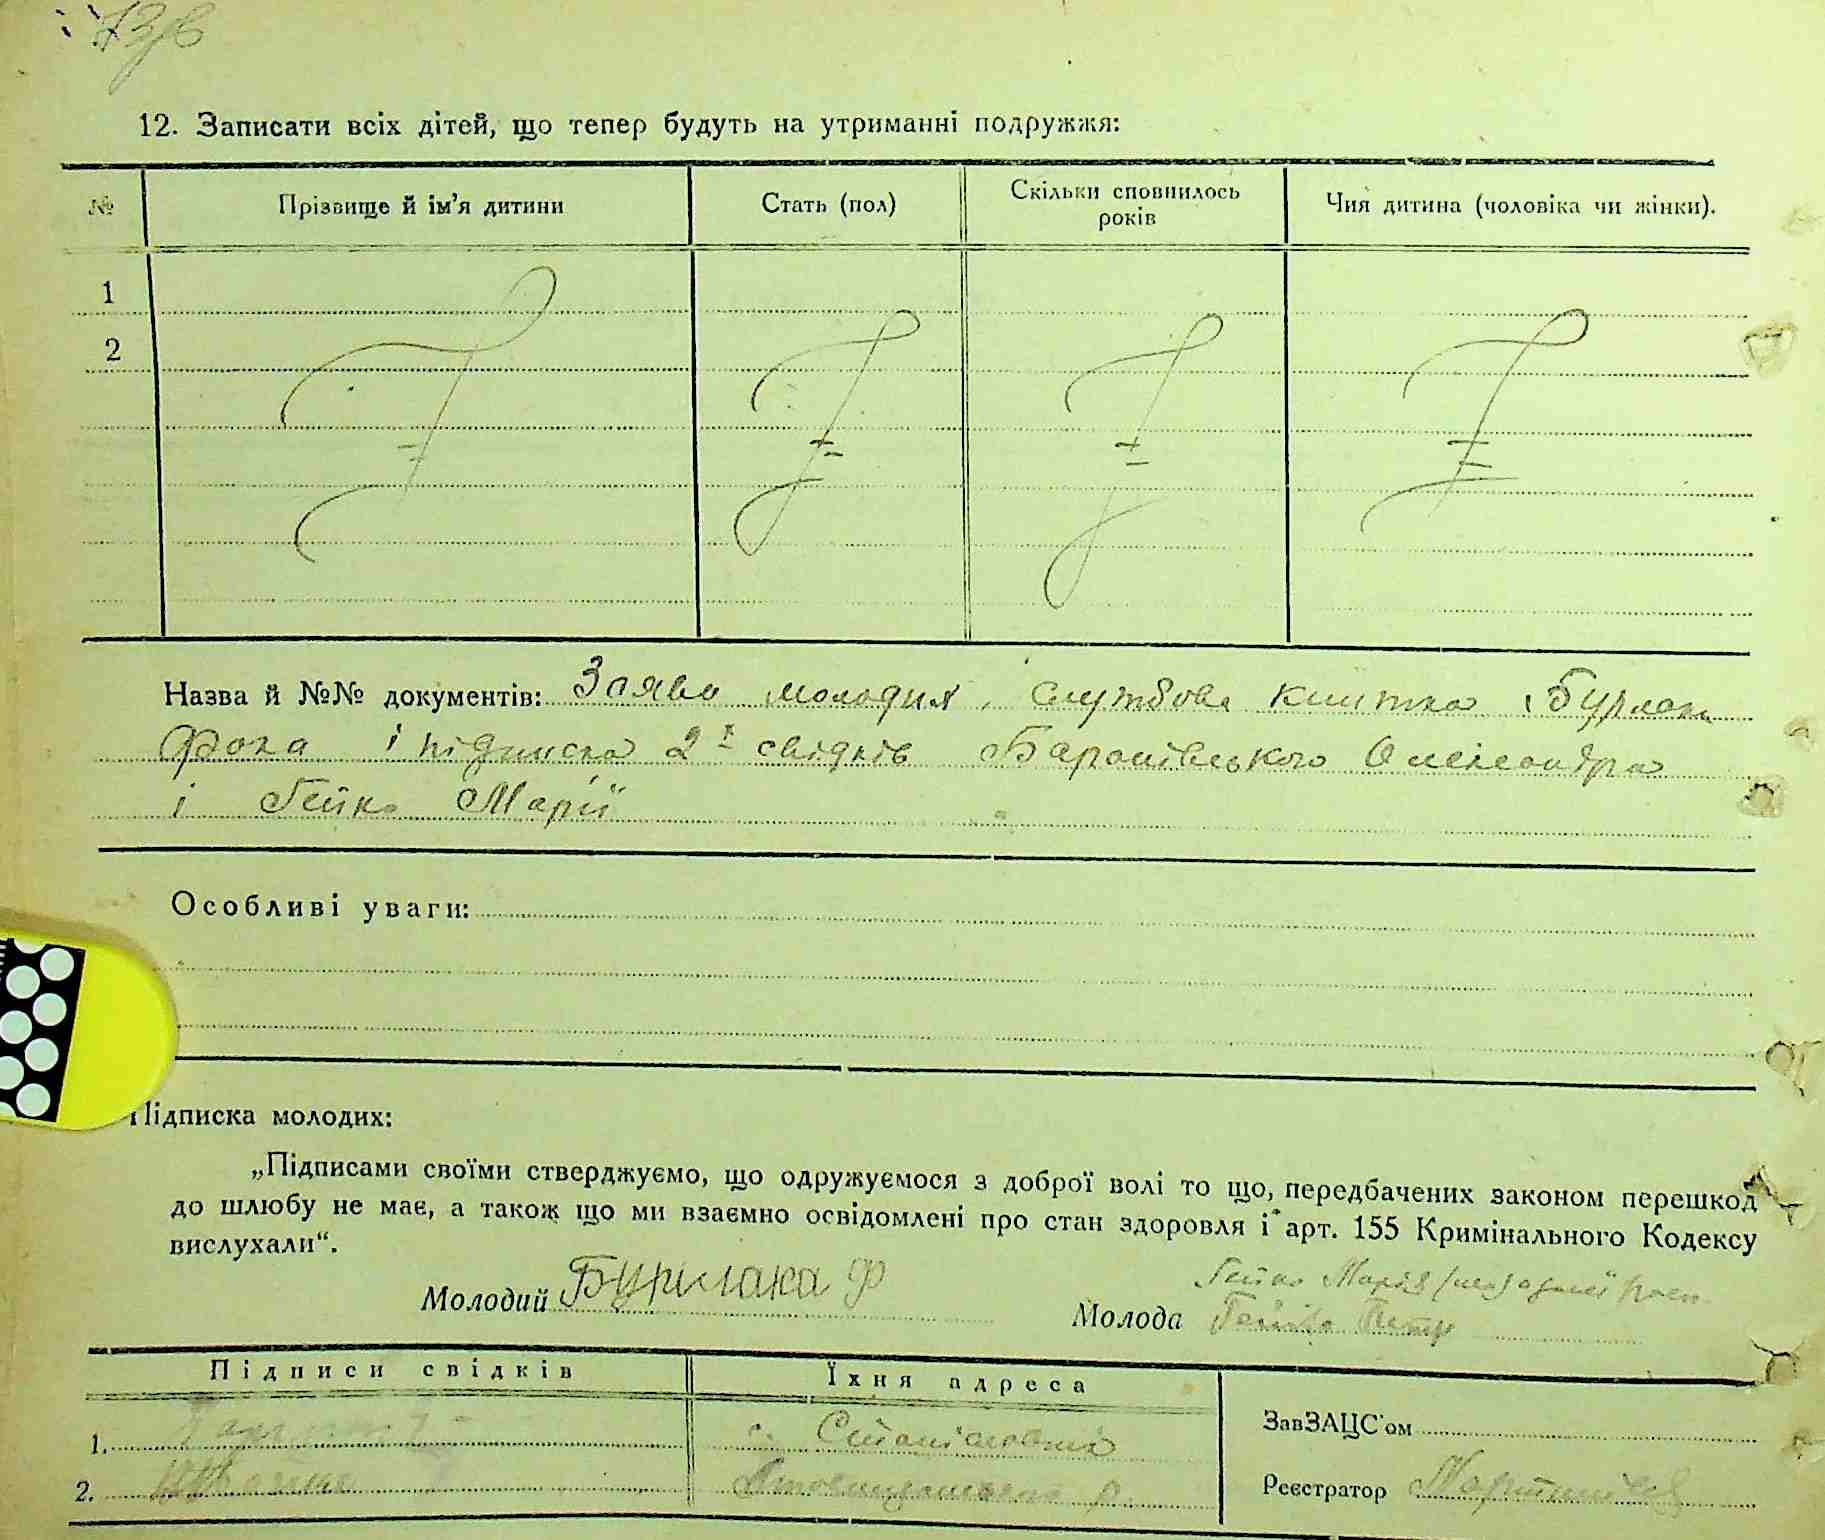 12. Записати всіх дітей, що тепер будуть на утриманні подружжя:
№ Прізвище й ім'я дитини Стать (пол) Скільки сповнилось років Чия дитина (чоловіка чи жінки).
1
2
Назва й №№ документів: Заява молодих, службова книжка Бурлаки
Фока і підписка 2х свідків Барановського Олександра
і Гейко Марії
Особливі уваги:
Підписка молодих:
„Підписами своїми стверджуємо, що одружуємося з доброї волі то що, передбачених законом перешкод
до шлюбу не має, а також що ми взаємно освідомлені про стан здоровля і арт. 155 Кримінального Кодексу
вислухали“.
Гейко Марія
Молодий Бурлака Ф Молода Гейко Петр
Підписи свідків Їхня адреса
1. с. ЗавЗАЦС'ом
2. р. Реєстратор